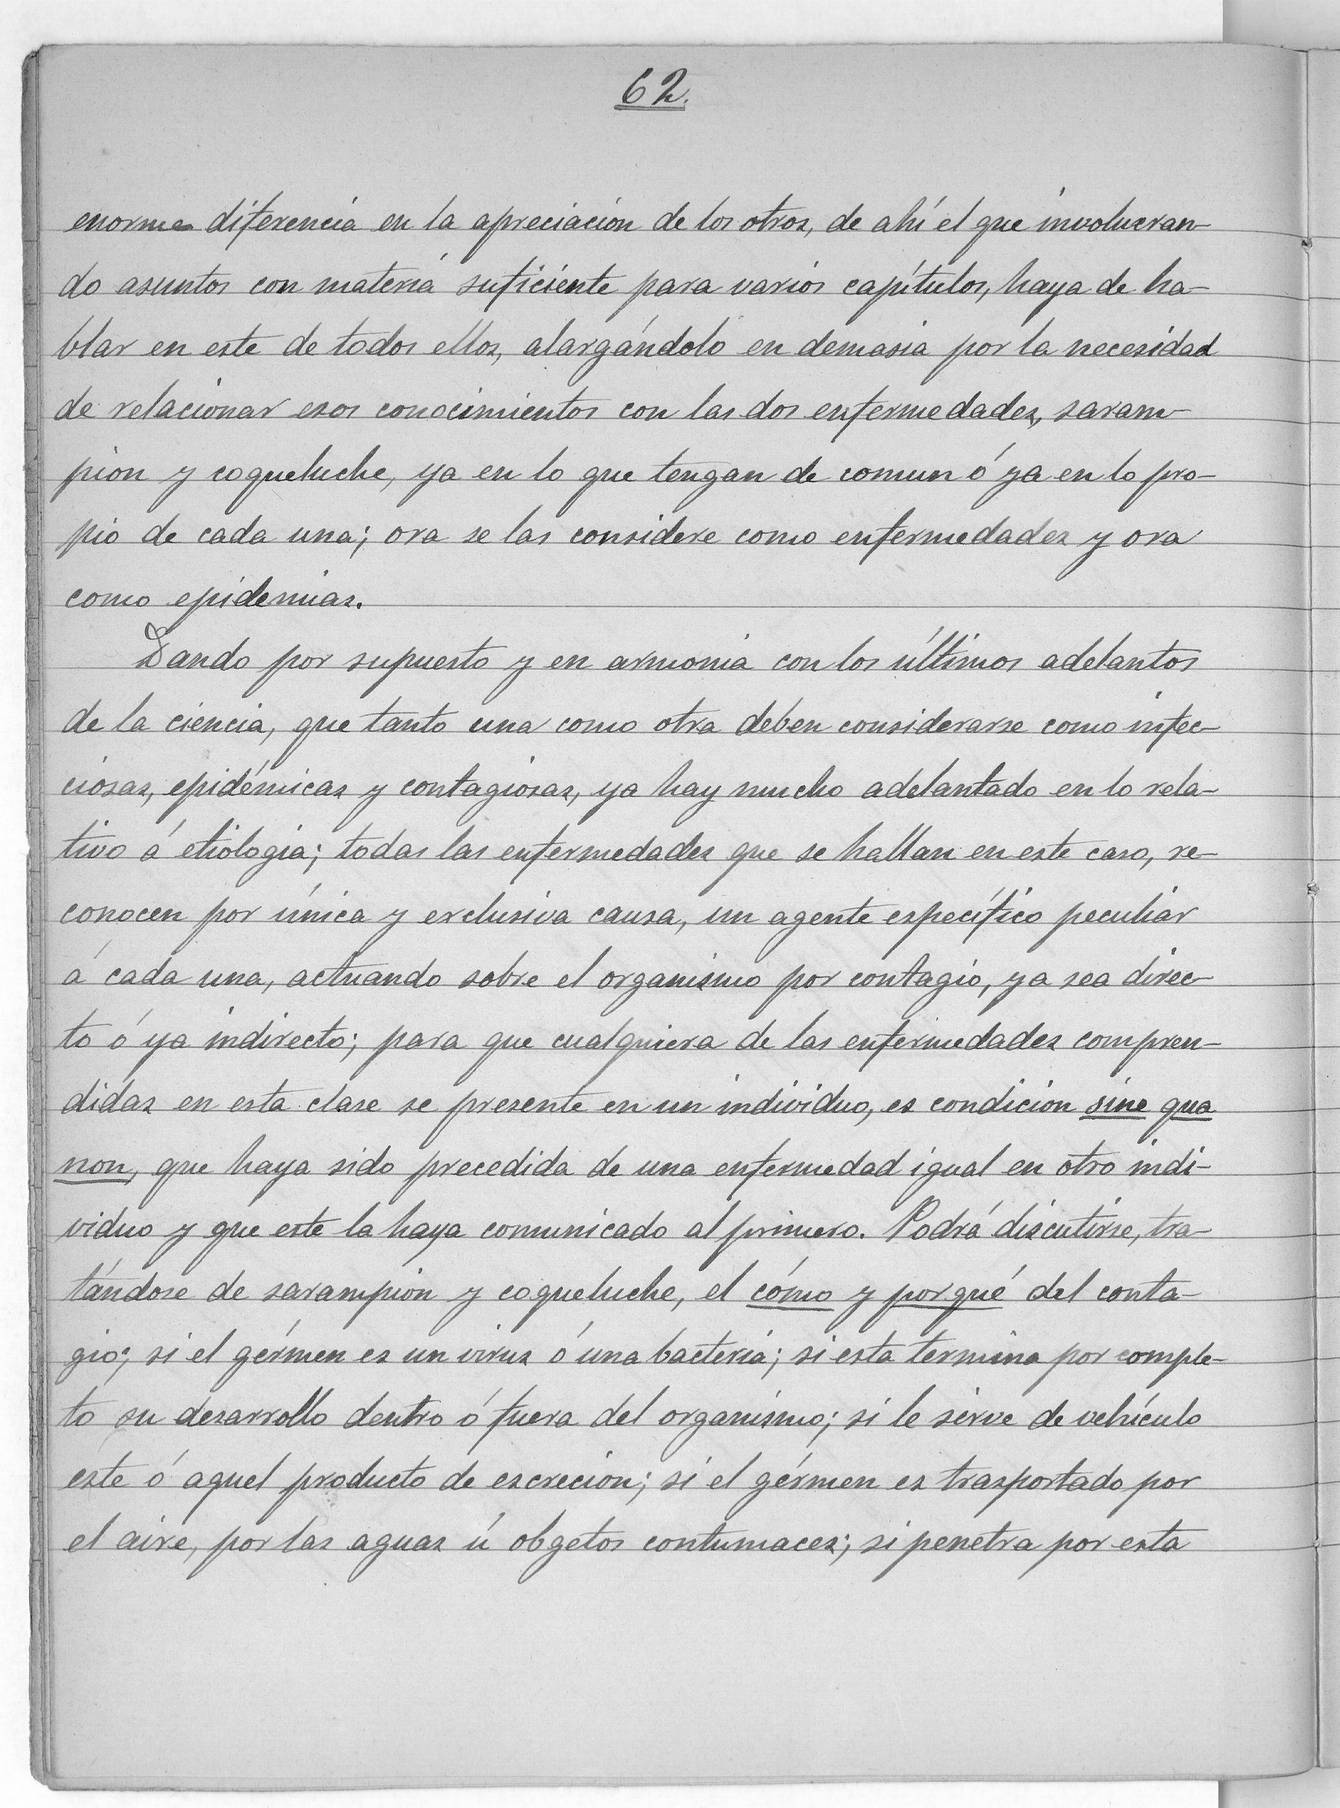 62.
enorme diferencia en la apreciación de los otros, de ahí el que involucran-
do asuntos con materia suficiente para varios capítulos, haya de ha-
blar en este de todos ellos, alargándolo en demasia por la necesidad
de relacionar esos conocimientos con las dos enfermedades, saram-
pion y coqueluche, ya en lo que tengan de comun ó ya en lo pro-
pio de cada una; ora se las considere como enfermedades y ora
como epidemias.
Dando por supuesto y en armonia con los últimos adelantos
de la ciencia, que tanto una como otra deben considerarse como infec-
ciosas, epidémicas y contagiosas, ya hay mucho adelantado en lo rela-
tivo á etiologia; todas las enfermedades que se hallan en este caso, re-
conocen por única y exclusiva causa, un agente específico peculiar
á cada una, actuando sobre el organismo por contagio, ya sea direc-
to ó ya indirecto; para que cualquiera de las enfermedades compren-
didas en esta clase se presente en un individuo, es condicion sine qua
non, que haya sido precedida de una enfermedad igual en otro indi-
viduo y que este la haya comunicado al primero. Podrá discutirse, tra-
tándose de sarampion y coqueluche, el cómo y porqué del conta-
gio; si el gérmen es un virus ó una bacteria; si esta termina por comple-
to su desarrollo dentro ó fuera del organismo; si le sirve de vehículo
este ó aquel producto de escrecion; si el gérmen es trasportado por
el aire, por las aguas ú obgetos contumaces; si penetra por esta